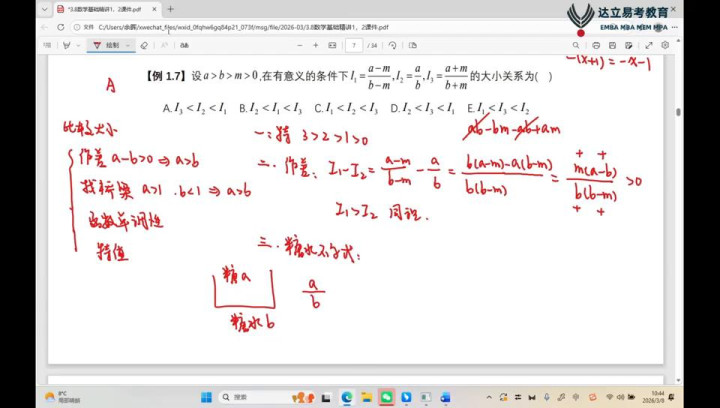 *3.8数学基础精讲1，2课件.pdf
文件 C:/Users/余辉/xwechat_files/wxid_0fqhw6gq84p21_073f/msg/file/2026-03/3.8数学基础精讲1，2课件.pdf
达立易考教育
EMBA MBA MEM MPA
绘制 7 / 34
-(x+1) = -x-1
A
【例 1.7】设 a>b>m>0,在有意义的条件下 I₁=(a−m)/(b−m), I₂=a/b, I₃=(a+m)/(b+m) 的大小关系为( )
A. I₃<I₂<I₁ B. I₂<I₁<I₃ C. I₁<I₂<I₃ D. I₂<I₃<I₁ E. I₁<I₃<I₂
比较大小
作差 a-b>0 ⇒ a>b
找桥梁 a>1 . b<1 ⇒ a>b
函数单调性
特值
一: 特 3>2>1>0
ab-bm-ab+am
二. 作差: I₁-I₂ = (a-m)/(b-m) - a/b = (b(a-m)-a(b-m))/(b(b-m)) = m(a-b)/(b(b-m)) >0
+ +
+ +
I₁>I₂ 同理.
三. 糖水不等式:
糖a
a/b
糖水b
8°C
搜索
10:44
2026/3/8